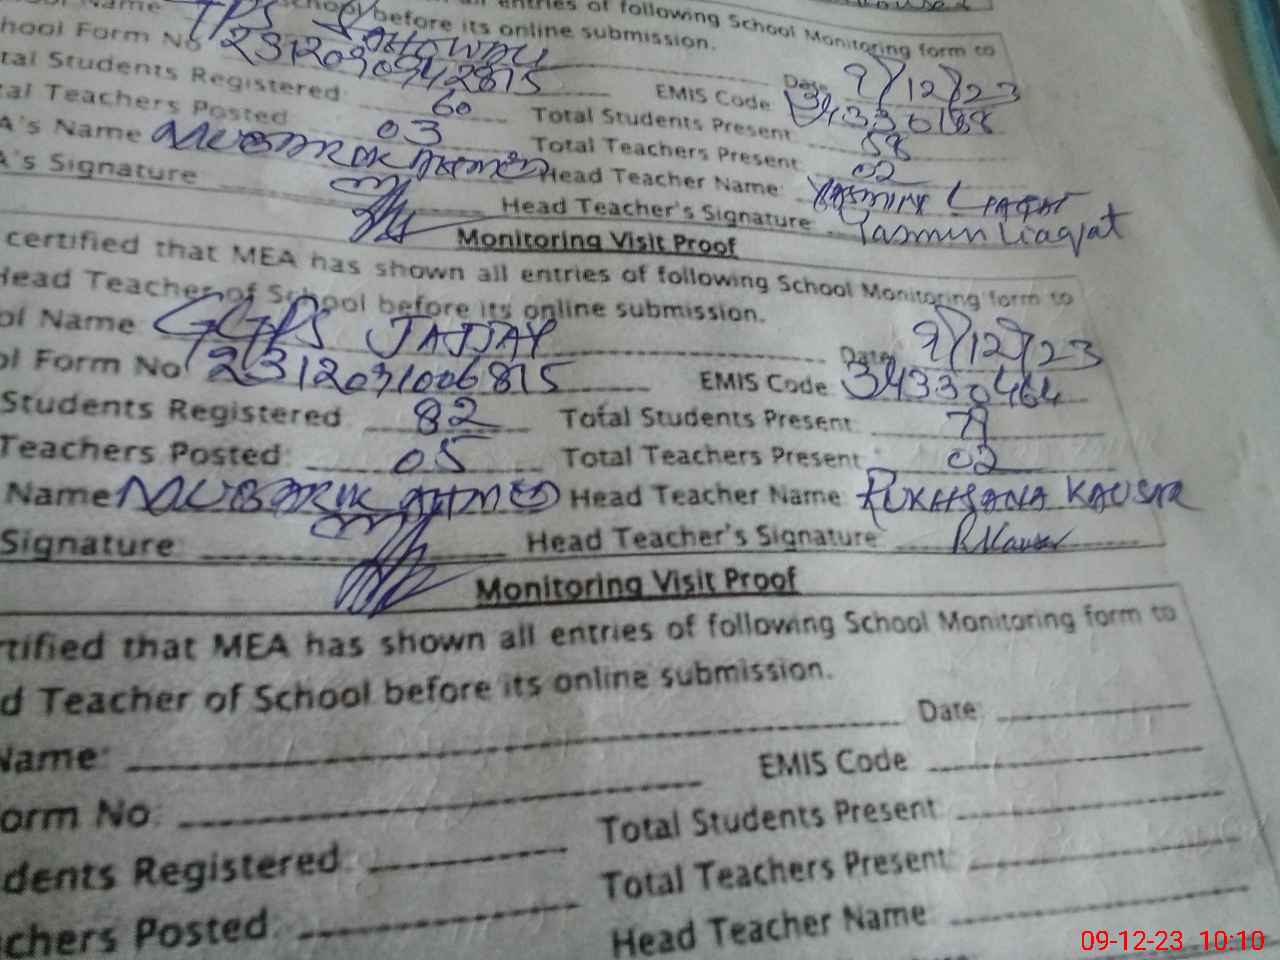 entries of following School Monitoring form to
School before its online submission.
Name
hool Form No 231209
Date 9/12/23
EMIS Code
tal Students Registered: 60 Total Students Present: 58
tal Teachers Posted 03 Total Teachers Present 02
A's Name MUBARIK AHMED Head Teacher Name: YASMIN LIAQAT
A's Signature Head Teacher's Signature Yasmin Liaqat
Monitoring Visit Proof
certified that MEA has shown all entries of following School Monitoring form to
Head Teacher of School before its online submission.
ol Name GGPS JAJJAY Date 9/12/23
ol Form No 2312091006815 EMIS Code 34330464
Students Registered 82 Total Students Present: 79
Teachers Posted: 05 Total Teachers Present 02
Name MUBARIK AHMED Head Teacher Name: RUKHSANA KAUSAR
Signature: Head Teacher's Signature: R.Kausar
Monitoring Visit Proof
rtified that MEA has shown all entries of following School Monitoring form to
d Teacher of School before its online submission.
Name: Date:
orm No: EMIS Code
dents Registered: Total Students Present:
chers Posted: Total Teachers Present:
Head Teacher Name:
09-12-23 10:10